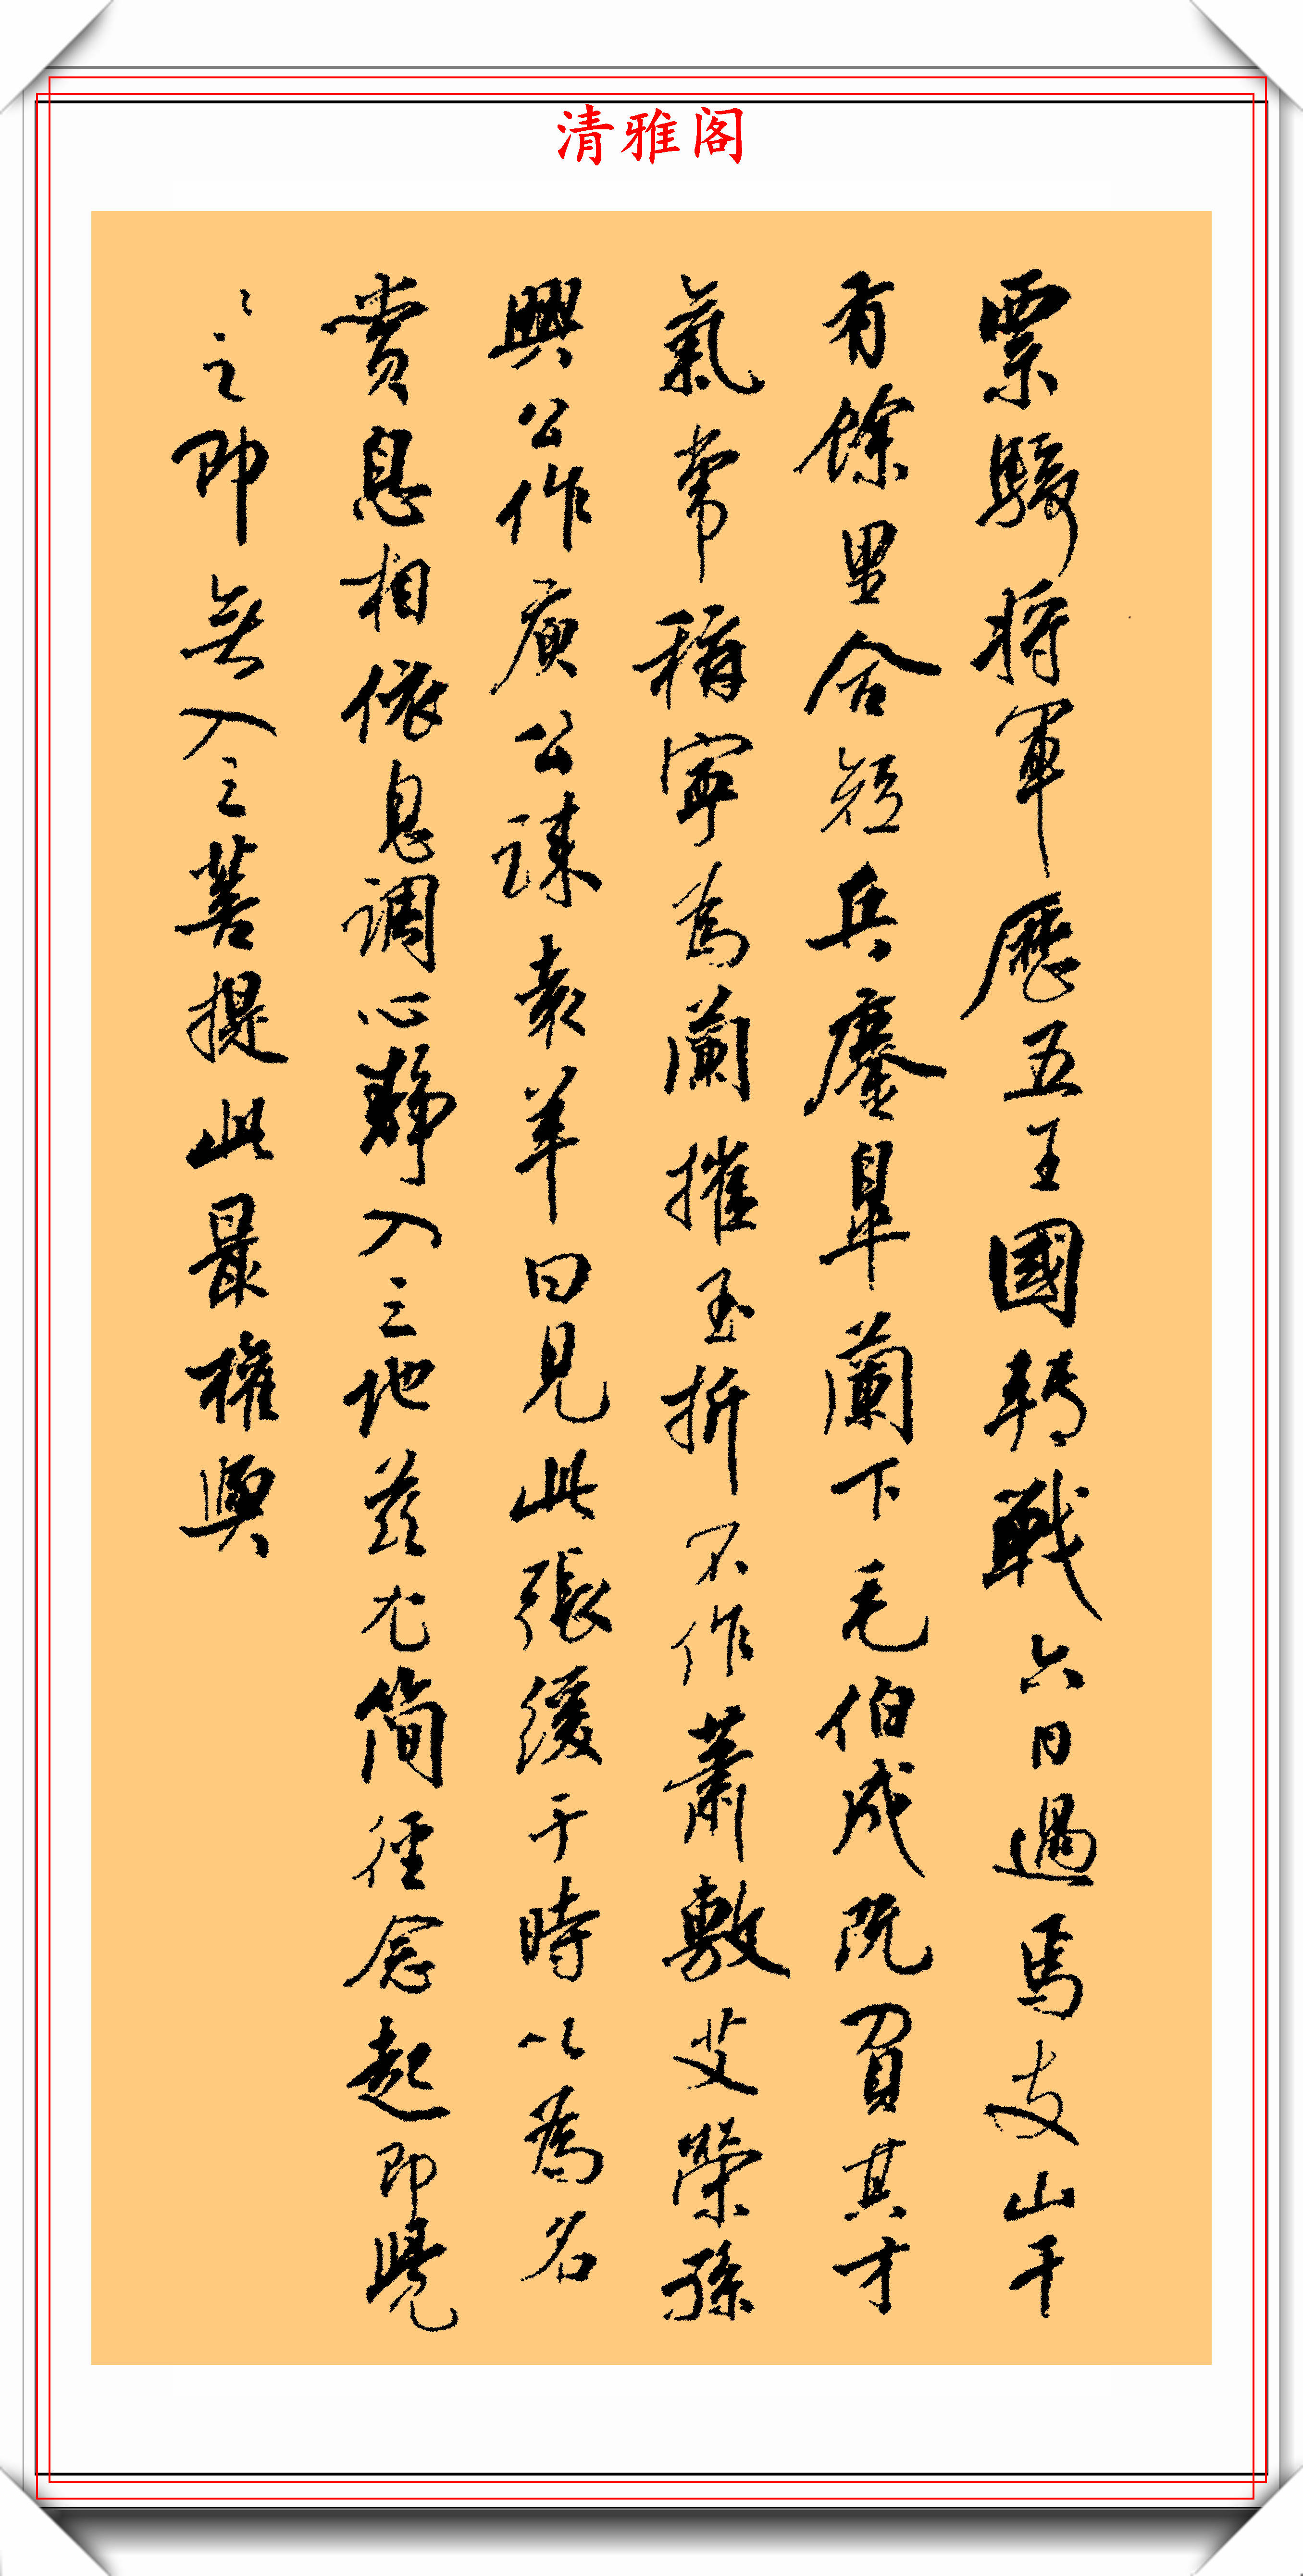 清雅阁
票騎将軍歷五王國轉戰六日過焉支山千
有餘里合短兵鏖皋蘭下毛伯成既負其才
氣常稱寧為蘭摧玉折不作蕭敷艾榮孫
興公作庾公誄袁羊曰見此張緩于時以為名
賞息相依息調心靜入三地茲尤简徑念起即覺
々之即無入三菩提此最權輿